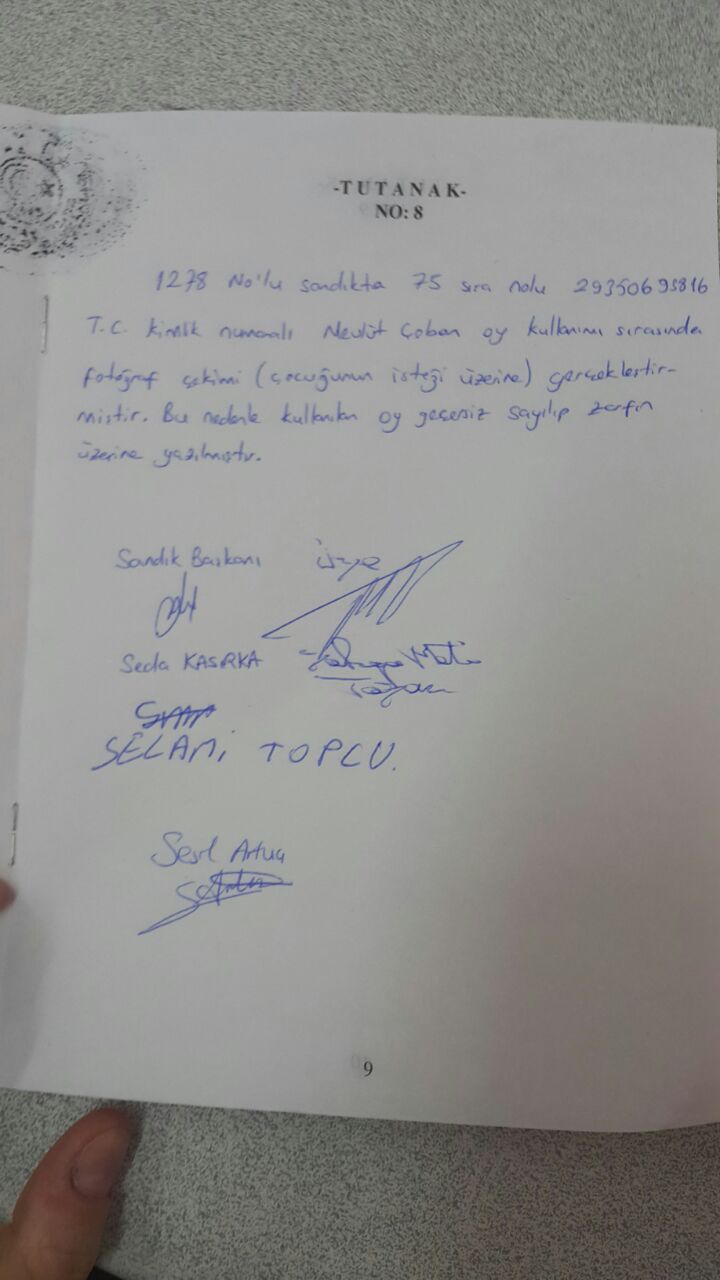 -TUTANAK-
NO: 8
1278 No'lu sandıkta 75 sıra nolu 29350693816
T.C. kimlik numaralı Nevlüt Çoban oy kullanımı sırasında
fotoğraf çekimi (çocuğunun isteği üzerine) gerçekleştir-
miştir. Bu nedenle kullanılan oy geçersiz sayılıp zarfın
üzerine yazılmıştır.
Sandık Başkanı Üye
Seda KASIRKA
SELAMİ TOPCU.
9